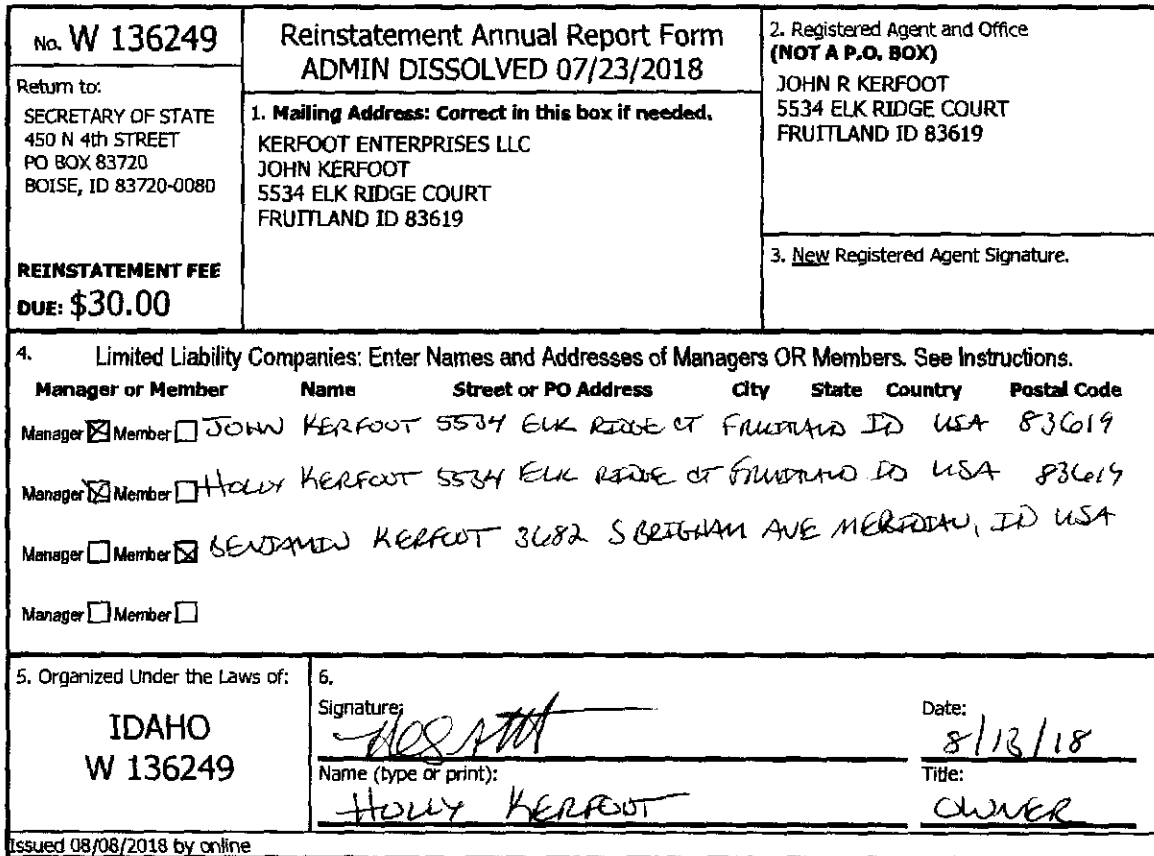 No. W 136249
Return to:
SECRETARY OF STATE
450 N 4th STREET
PO BOX 83720
BOISE, ID 83720-0080
REINSTATEMENT FEE
DUE: $30.00
Reinstatement Annual Report Form
ADMIN DISSOLVED 07/23/2018
1. Mailing Address: Correct in this box if needed.
KERFOOT ENTERPRISES LLC
JOHN KERFOOT
5534 ELK RIDGE COURT
FRUITLAND ID 83619
2. Registered Agent and Office
(NOT A P.O. BOX)
JOHN R KERFOOT
5534 ELK RIDGE COURT
FRUITLAND ID 83619
3. New Registered Agent Signature.
4. Limited Liability Companies: Enter Names and Addresses of Managers OR Members. See Instructions.
Manager or Member Name Street or PO Address City State Country Postal Code
Manager ☒ Member ☐ JOHN KERFOOT 5534 ELK RIDGE CT FRUITLAND ID USA 83619
Manager ☒ Member ☐ HOLLY KERFOOT 5534 ELK RIDGE CT FRUITLAND ID USA 83619
Manager ☐ Member ☒ BENJAMIN KERFOOT 3682 S BRIGHAM AVE MERIDIAN, ID USA
Manager ☐ Member ☐
5. Organized Under the Laws of:
IDAHO
W 136249
6.
Signature:
Date:
8/13/18
Name (type or print):
HOLLY KERFOOT
Title:
OWNER
Issued 08/08/2018 by online